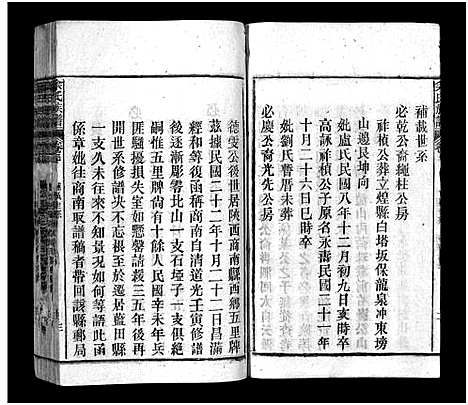 補載世系
必乾公裔繩柱公房
祥楨公葬立煌縣白塔坂保龍泉冲東塝
山邊艮坤向
妣盧氏民國八年十二月初九日亥時卒
高詠祥楨公子名永壽民國三十一年
十月二十六日巳時卒
妣劉氏瞽厝未葬
必慶公裔光先公房
德雯公後世居陝西商南縣西鄉五里牌
茲據民國二十二年十月二十二日昌滿
經和等復函稱商南自清道光壬寅修譜
以後逐漸彫零比山一支石埡子一支俱絕
嗣惟五里牌尙有十餘人民國辛未年兵
匪騷擾損失如懸罄請裁三五年後再
開世系修譜决不忘根至於遷居藍田縣
一支久未往來不知景現如何等語此函
係附商南取譜稿者帶回該縣郵局